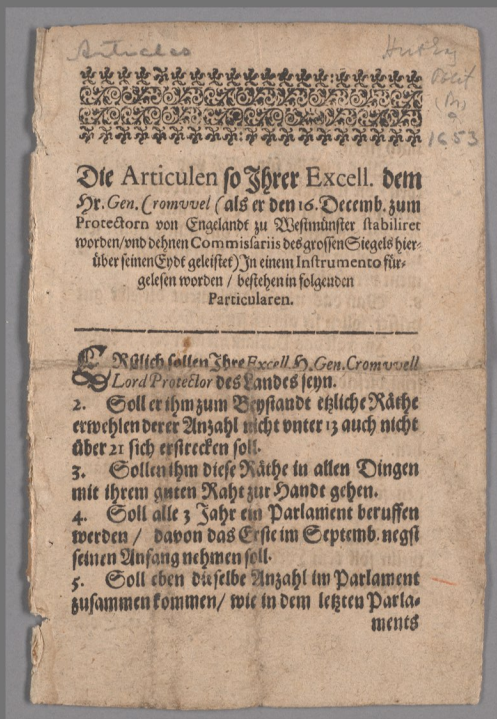 Articules
Die Articulen so Jhrer Excell. dem
Hr. Gen. Cromvvel (als er den 16. Decemb. zum
Protectorn von Engelandt zu Westmünster stabiliret
worden/vnd dehnen Commissariis des grossen Siegels hier-
über seinen Eydt geleistet) Jn einem Instrumento für-
gelesen worden / bestehen in folgenden
Particularen.
ERstlich sollen Jhre Excell. H. Gen. Cromvvell
Lord Protector des Landes seyn.
2. Soll er ihm zum Beystandt etzliche Räthe
erwehlen derer Anzahl nicht vnter 13 auch nicht
über 21 sich erstrecken soll.
3. Sollen ihm diese Räthe in allen Dingen
mit ihrem guten Raht zur Handt gehen.
4. Soll alle 3 Jahr ein Parlament beruffen
werden / davon das Erste im Septemb. negst
seinen Anfang nehmen soll.
5. Soll eben dieselbe Anzahl im Parlament
zusammen kommen/ wie in dem letzten Parla-
ments
1653